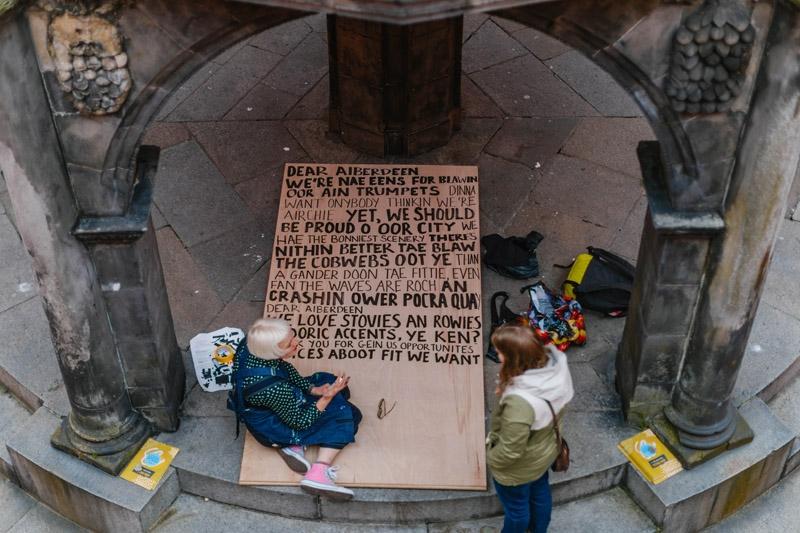 DEAR AIBERDEEN
WE'RE NAE EENS FOR BLAWIN
OOR AIN TRUMPETS DINNA
WANT ONYBODY THINKIN WE'RE
AIRCHIE YET, WE SHOULD
BE PROUD O OOR CITY WE
HAE THE BONNIEST SCENERY THERES
NITHIN BETTER TAE BLAW
THE COBWEBS OOT YE THAN
A GANDER DOON TAE FITTIE, EVEN
FAN THE WAVES ARE ROCH AN
CRASHIN OWER POCRA QUAY
DEAR AIBERDEEN
WE LOVE STOVIES AN ROWIES
DORIC ACCENTS, YE KEN?
YOU FOR GEIN US OPPORTUNITIES
ABOOT FIT WE WANT